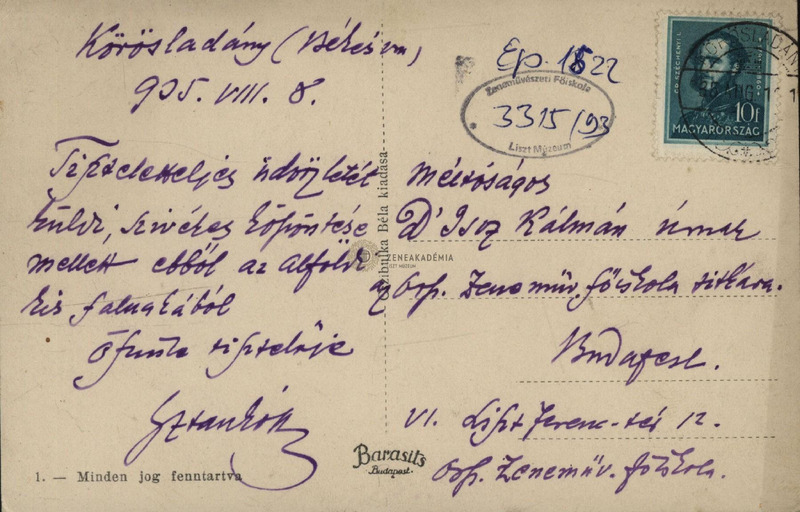 Körösladány (Békésm)
935. VIII. 8.
Tiszteletteljes üdvözletét
küldi, szivélyes köszöntése
mellett ebből az alföldi
kis falucskából
őszinte tisztelője
Sztankó
1. — Minden jog fenntartva
Czibulka Béla kiadása
ZENEAKADÉMIA
LISZT MÚZEUM
Barasits
Budapest.
Ep. 1522
Zeneművészeti Főiskola
3315/93
Liszt Múzeum
GR. SZÉCHENYI I.
10f
MAGYARORSZÁG
KÖRÖSLADÁNY
Méltóságos
Dr Isoz Kálmán úrnak
az Orsz. Zeneműv. főiskola titkára.
Budapest.
VI. Liszt Ferenc-tér 12.
Orsz. Zeneműv. főiskola.